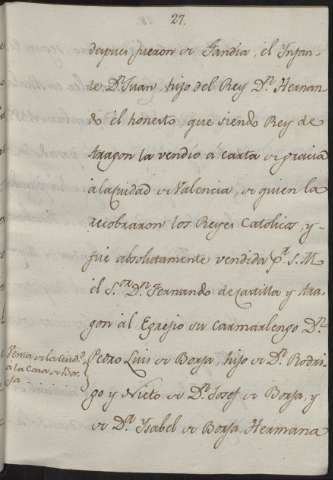 27.
depues fueron de Gandia, el Infan-
te Dn. Juan, hijo del Rey Dn. Hernan-
do el honesto que siendo Rey de
Aragon la vendio á carta de gracia
á la Ciudad de Valencia, de quien la
recobraron los Reyes Catolicos, y
fue absolutamente vendida pr. S. M
el Sor. Dn. Fernando de Castilla y Ara-
gon al Egrejio su Camarlengo Dn.
Pedro Luis de Borja, hijo de Dn. Rodri-
go y Nieto de Dn. Josef de Borja, y
de Da. Ysabel de Borja Hermana
Venta de la Ciudad
a la Casa de Bor-
ja